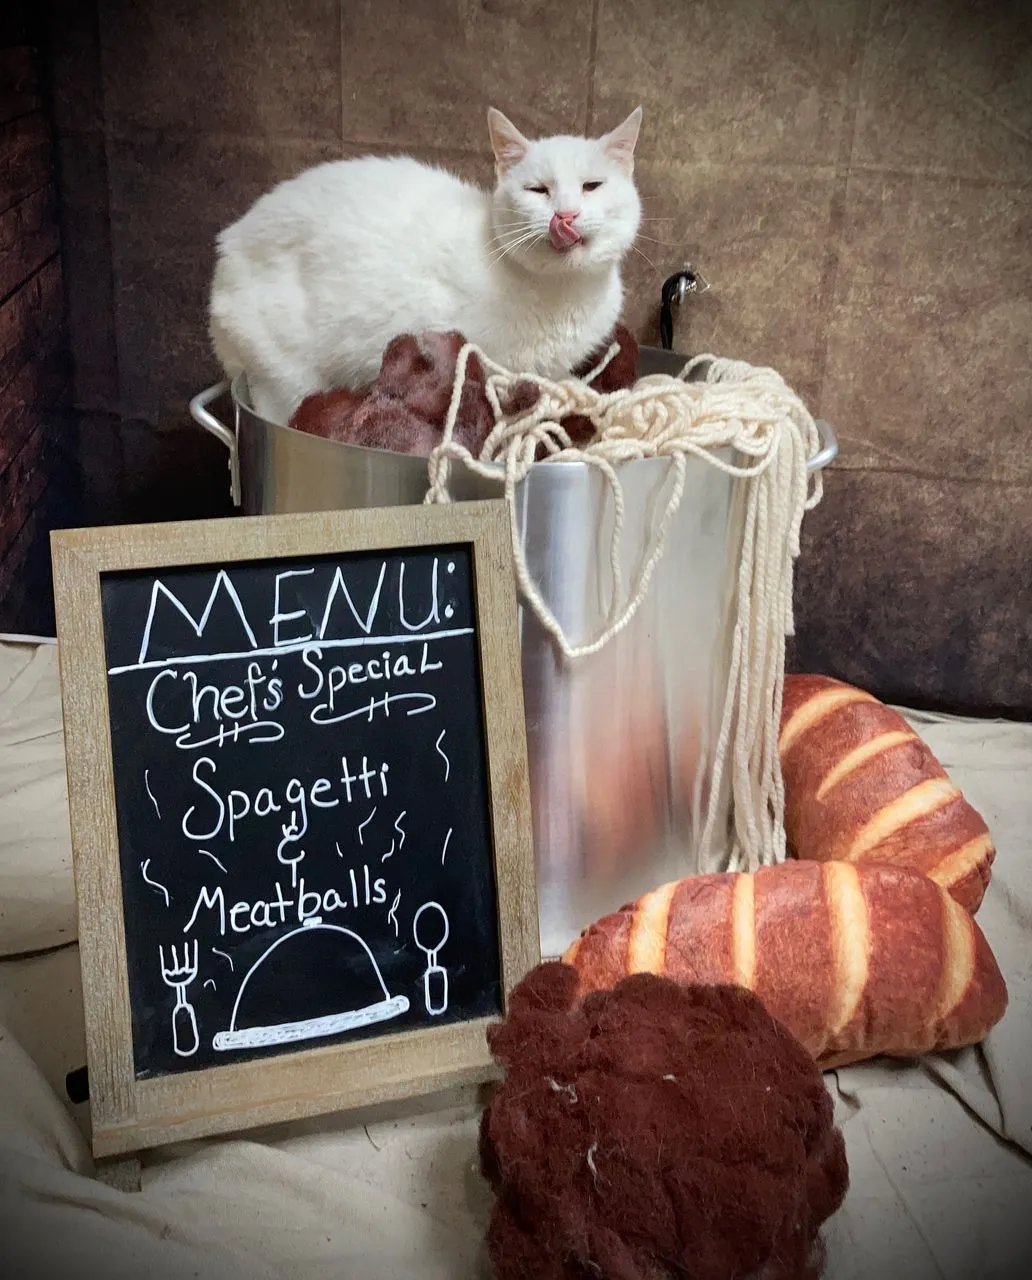 MENU:
Chef's Special
Spagetti
&
Meatballs